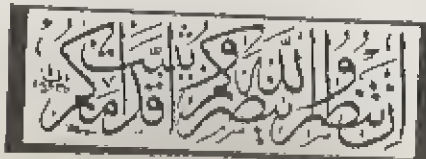 ان تنصروا الله ينصركم ويثبت اقدامكم